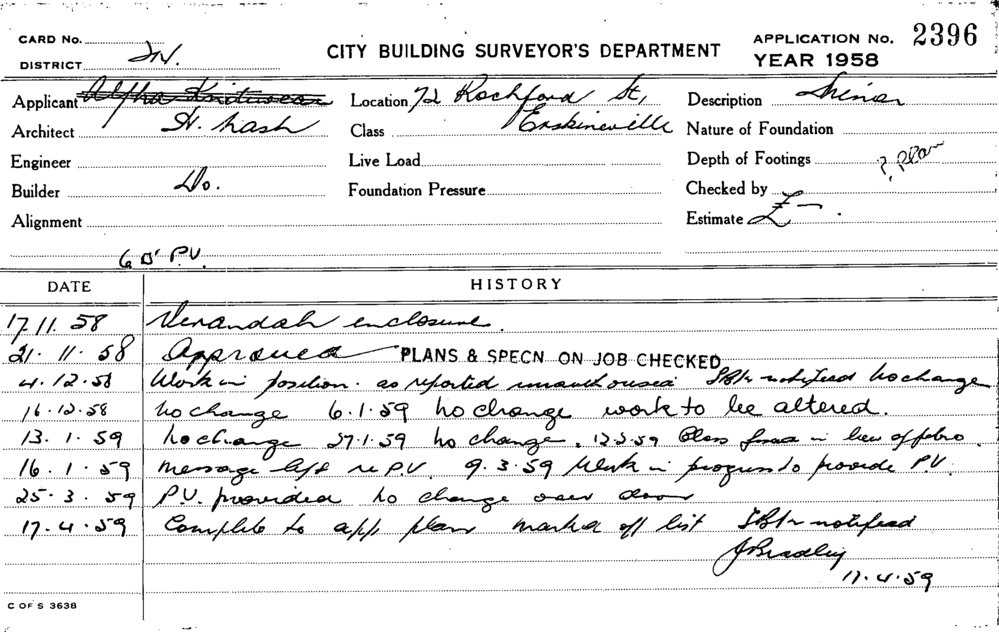 CARD No. APPLICATION No. 2396
DISTRICT CITY BUILDING SURVEYOR'S DEPARTMENT YEAR 1958
Applicant Alpha Knitwear Location 72 Rochford St, Description Minor
Architect H. Nash Class Erskineville Nature of Foundation
Engineer Live Load Depth of Footings ? Plan
Builder Do. Foundation Pressure Checked by
Alignment Estimate £ —
6 □' P.V.
DATE HISTORY
17.11.58 Verandah enclosure.
21.11.58 Approved PLANS & SPECN ON JOB CHECKED
4.12.58 Work in position. as reported notified No change
16.12.58 No change 6.1.59 No change work to be altered.
13.1.59 No change 27.1.59 No change. Glass in lieu of fibro.
16.1.59 Message left re P.V. 9.3.59 Work in progress to provide P.V.
25.3.59 P.V. provided No change over door
17.4.59 Complete to app plan marked off list notified
J Bradley
17.4.59
C OF S 3638